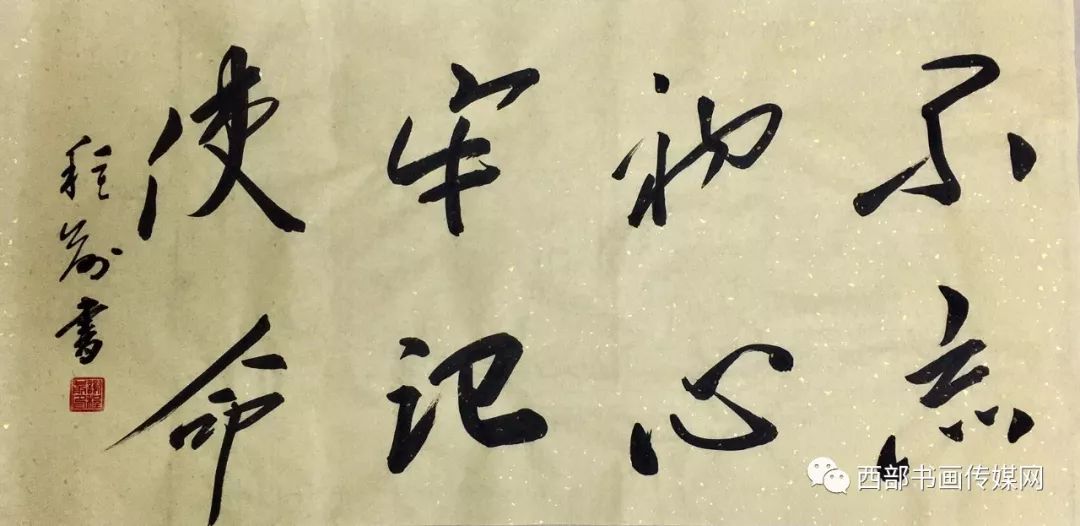 不忘
初心
牢记
使命
程前书
西部书画传媒网